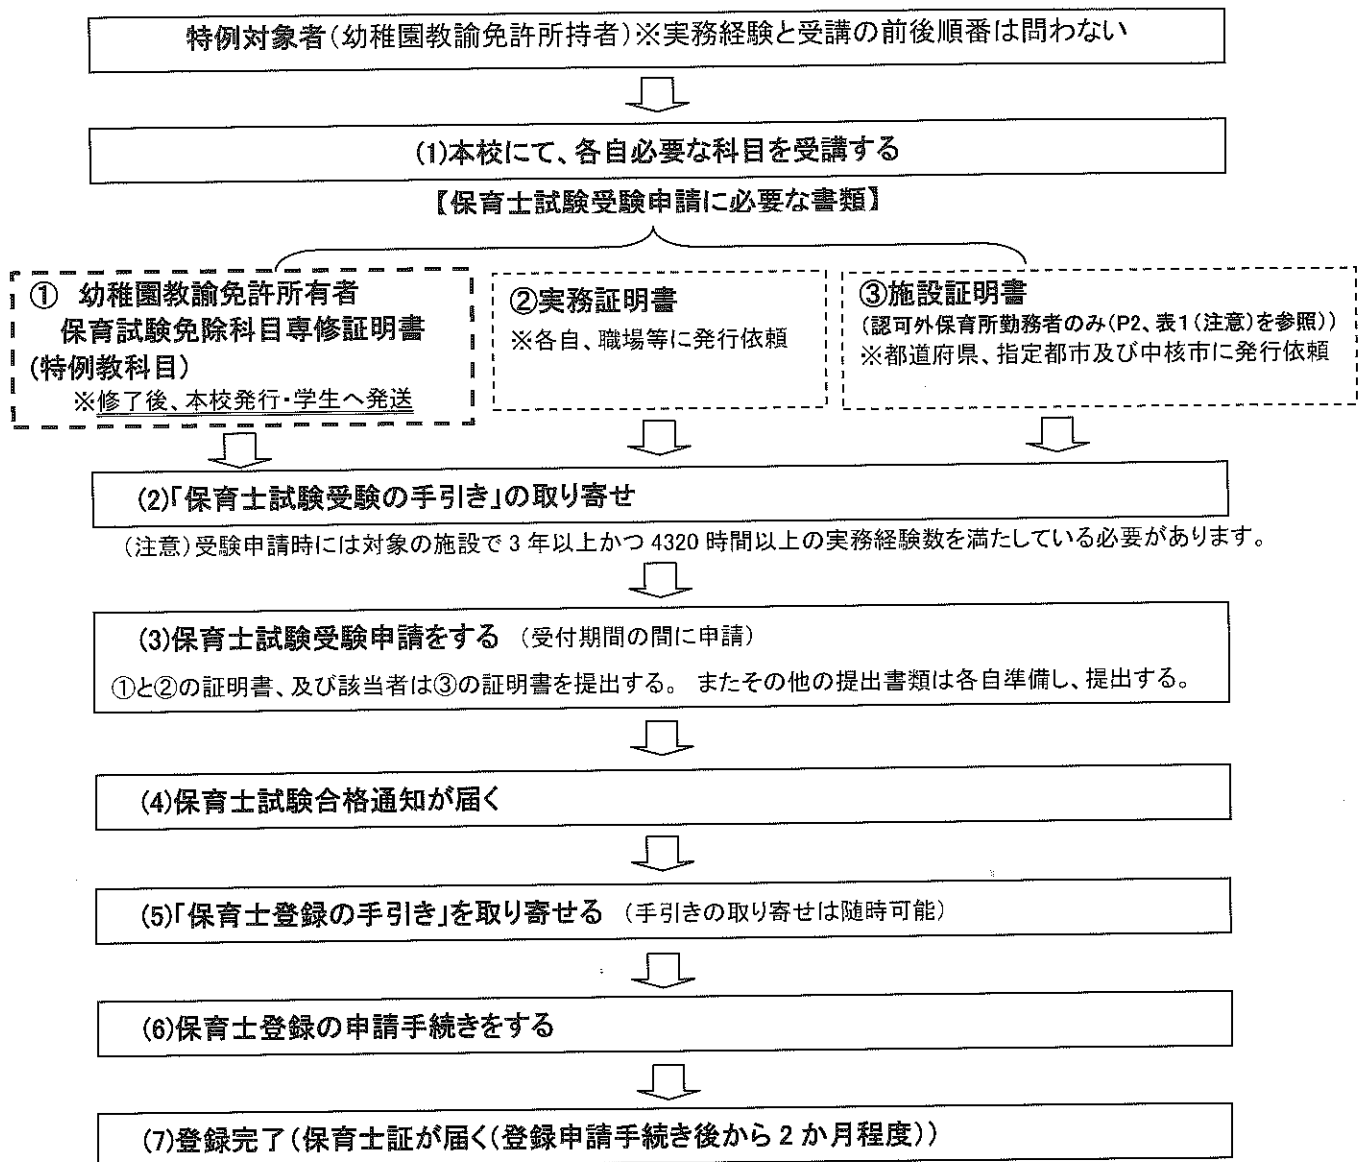 特例対象者(幼稚園教諭免許所持者)※実務経験と受講の前後順番は問わない
(1)本校にて、各自必要な科目を受講する
【保育士試験受験申請に必要な書類】
① 幼稚園教諭免許所有者
保育試験免除科目専修証明書
(特例教科目)
※修了後、本校発行・学生へ発送
②実務証明書
※各自、職場等に発行依頼
③施設証明書
(認可外保育所勤務者のみ(P2、表1(注意)を参照))
※都道府県、指定都市及び中核市に発行依頼
(2)「保育士試験受験の手引き」の取り寄せ
(注意)受験申請時には対象の施設で3年以上かつ4320時間以上の実務経験数を満たしている必要があります。
(3)保育士試験受験申請をする (受付期間の間に申請)
①と②の証明書、及び該当者は③の証明書を提出する。 またその他の提出書類は各自準備し、提出する。
(4)保育士試験合格通知が届く
(5)「保育士登録の手引き」を取り寄せる (手引きの取り寄せは随時可能)
(6)保育士登録の申請手続きをする
(7)登録完了(保育士証が届く(登録申請手続き後から2か月程度))